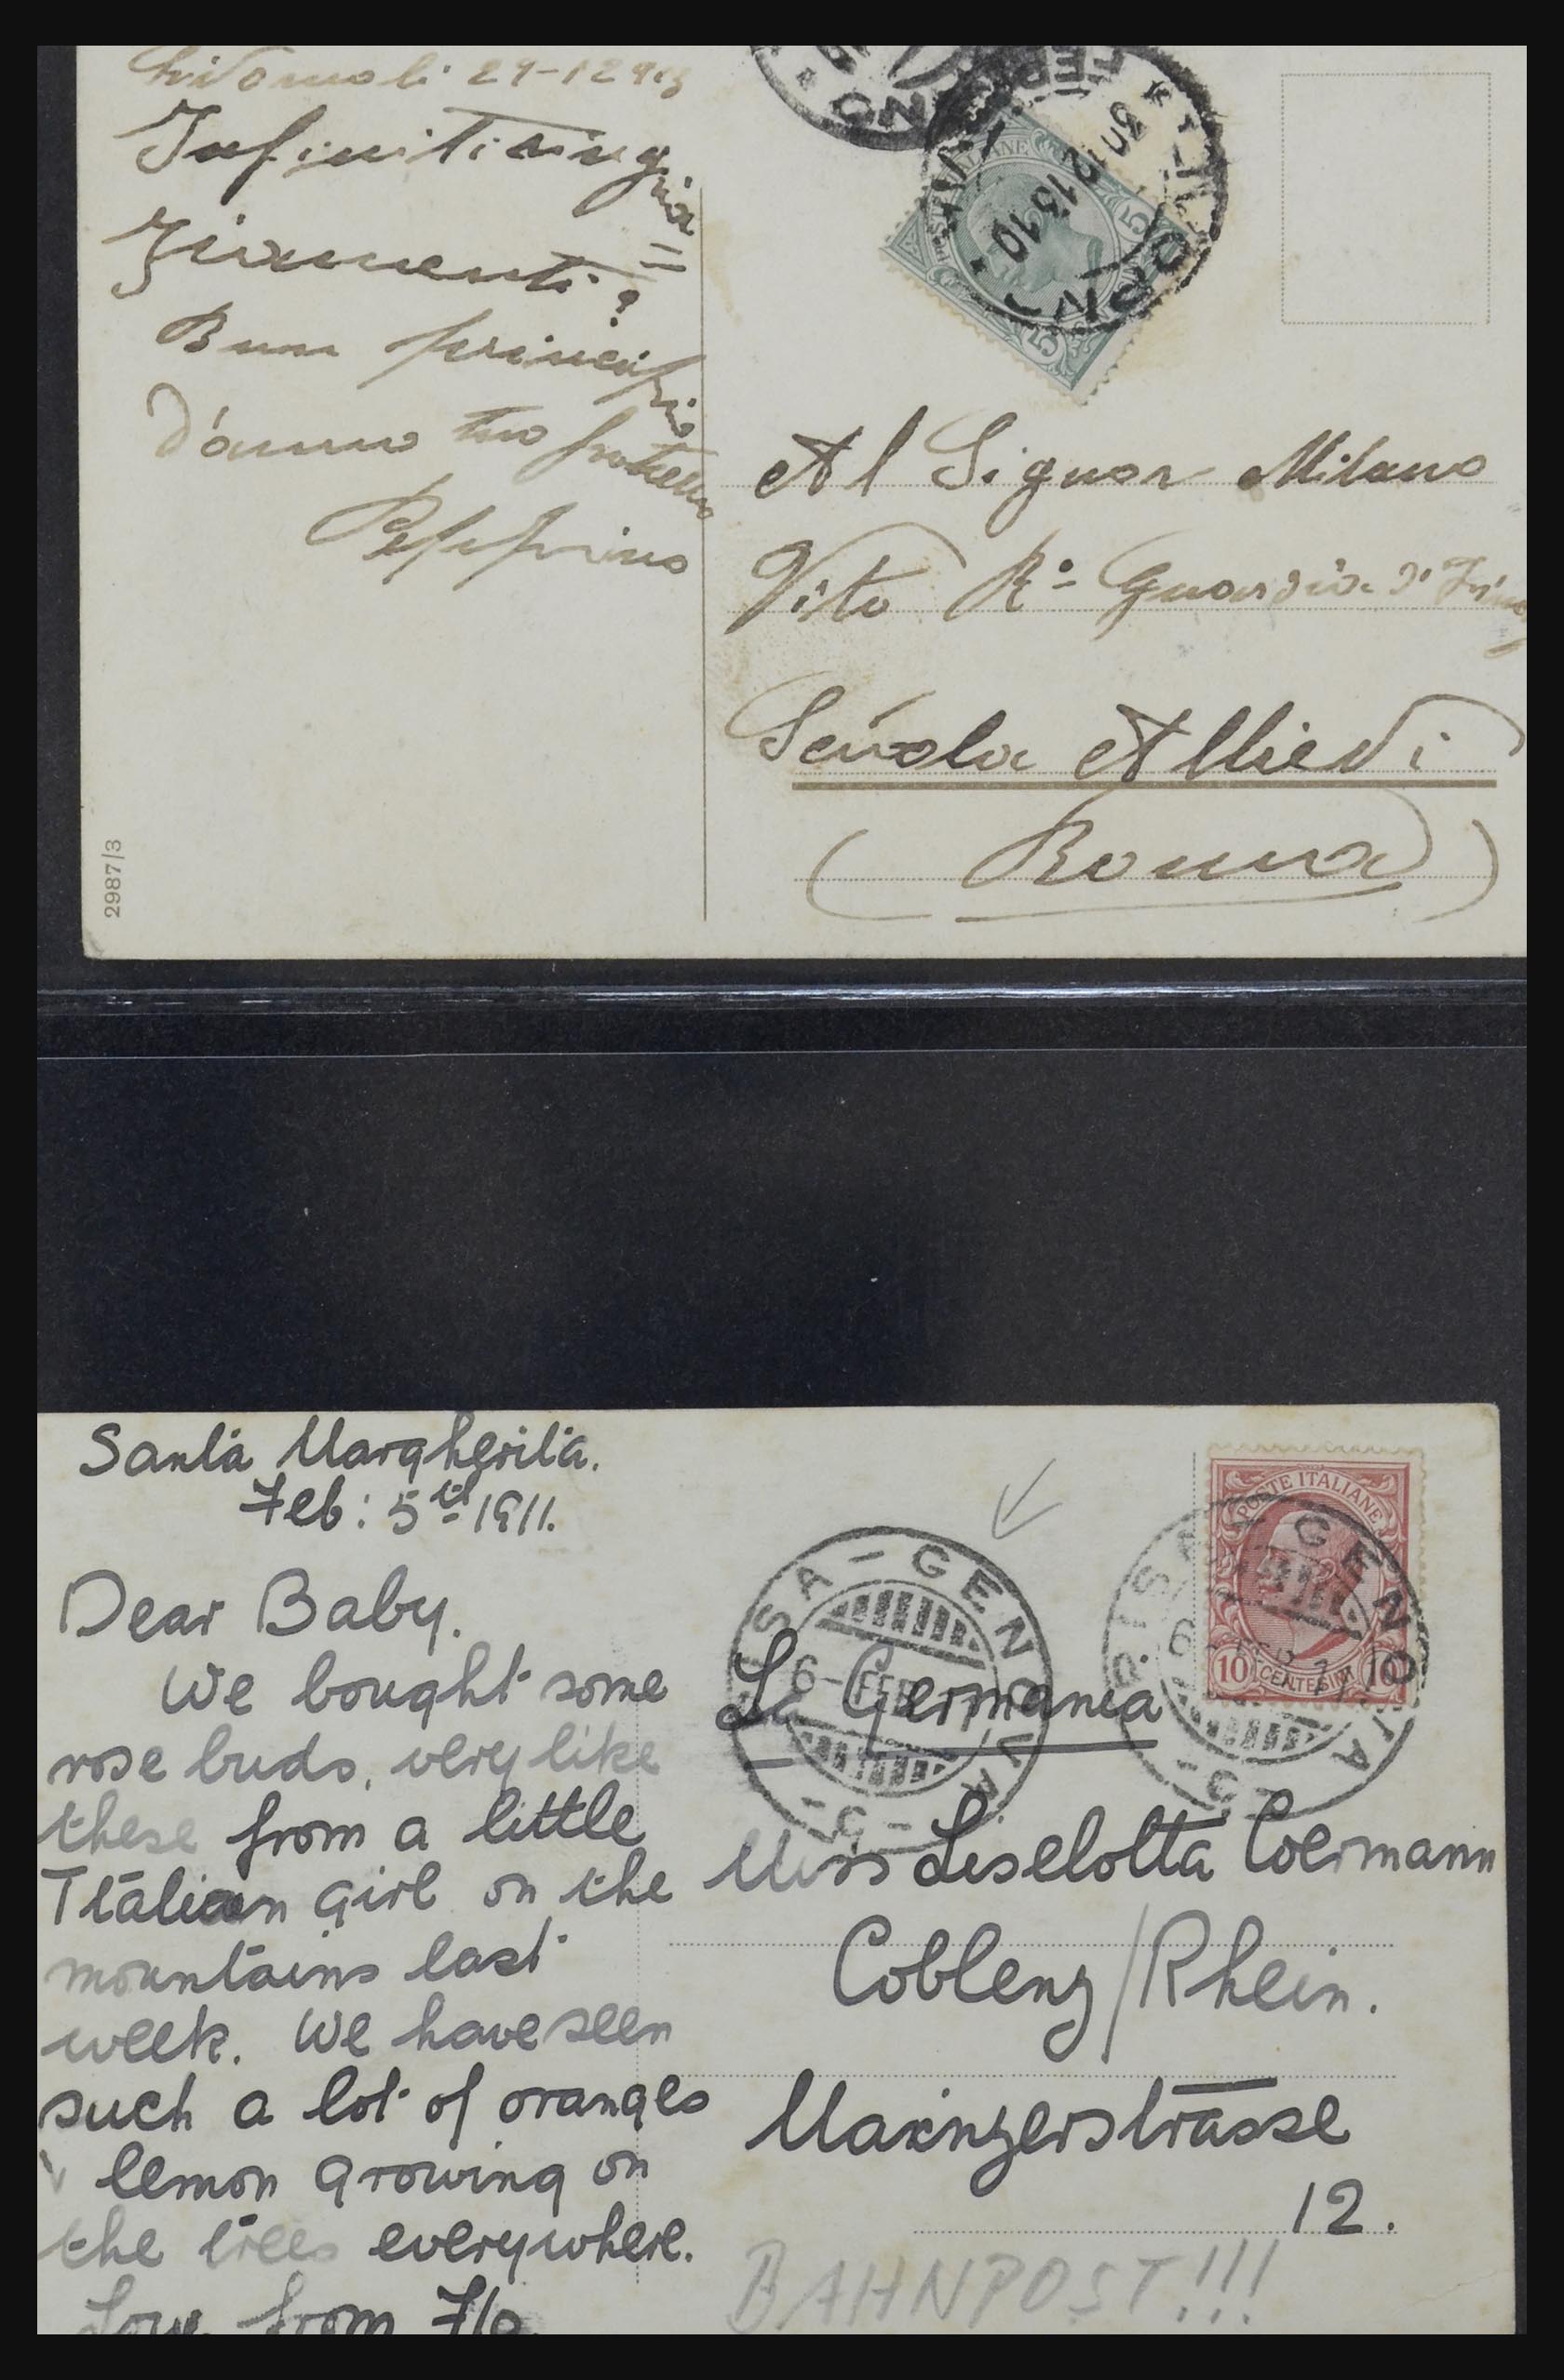 29-12913
Infiniti ringra=
ziamenti?
Buon principio
d'anno tuo fratello
Peppino
5
5
30 12 13 10
Al Signor Milano
Vito Rº Guardia di
Scuola Allievi
(Roma)
2987/3
Santa Margherita.
Feb: 5th 1911.
Dear Baby.
We bought some
rose buds, very like
these from a little
Italian girl on the
mountains last
week. We have seen
such a lot of oranges
lemon growing on
the trees everywhere.
Love from
POSTE ITALIANE
10 CENTESIMI 10
PISA-GENOVA
6-FEB
PISA-GENOVA
6-FEB 11
La Germania
Miss Liselotta Coermann
Coblenz/Rhein.
Mainzerstrasse
12.
BAHNPOST!!!